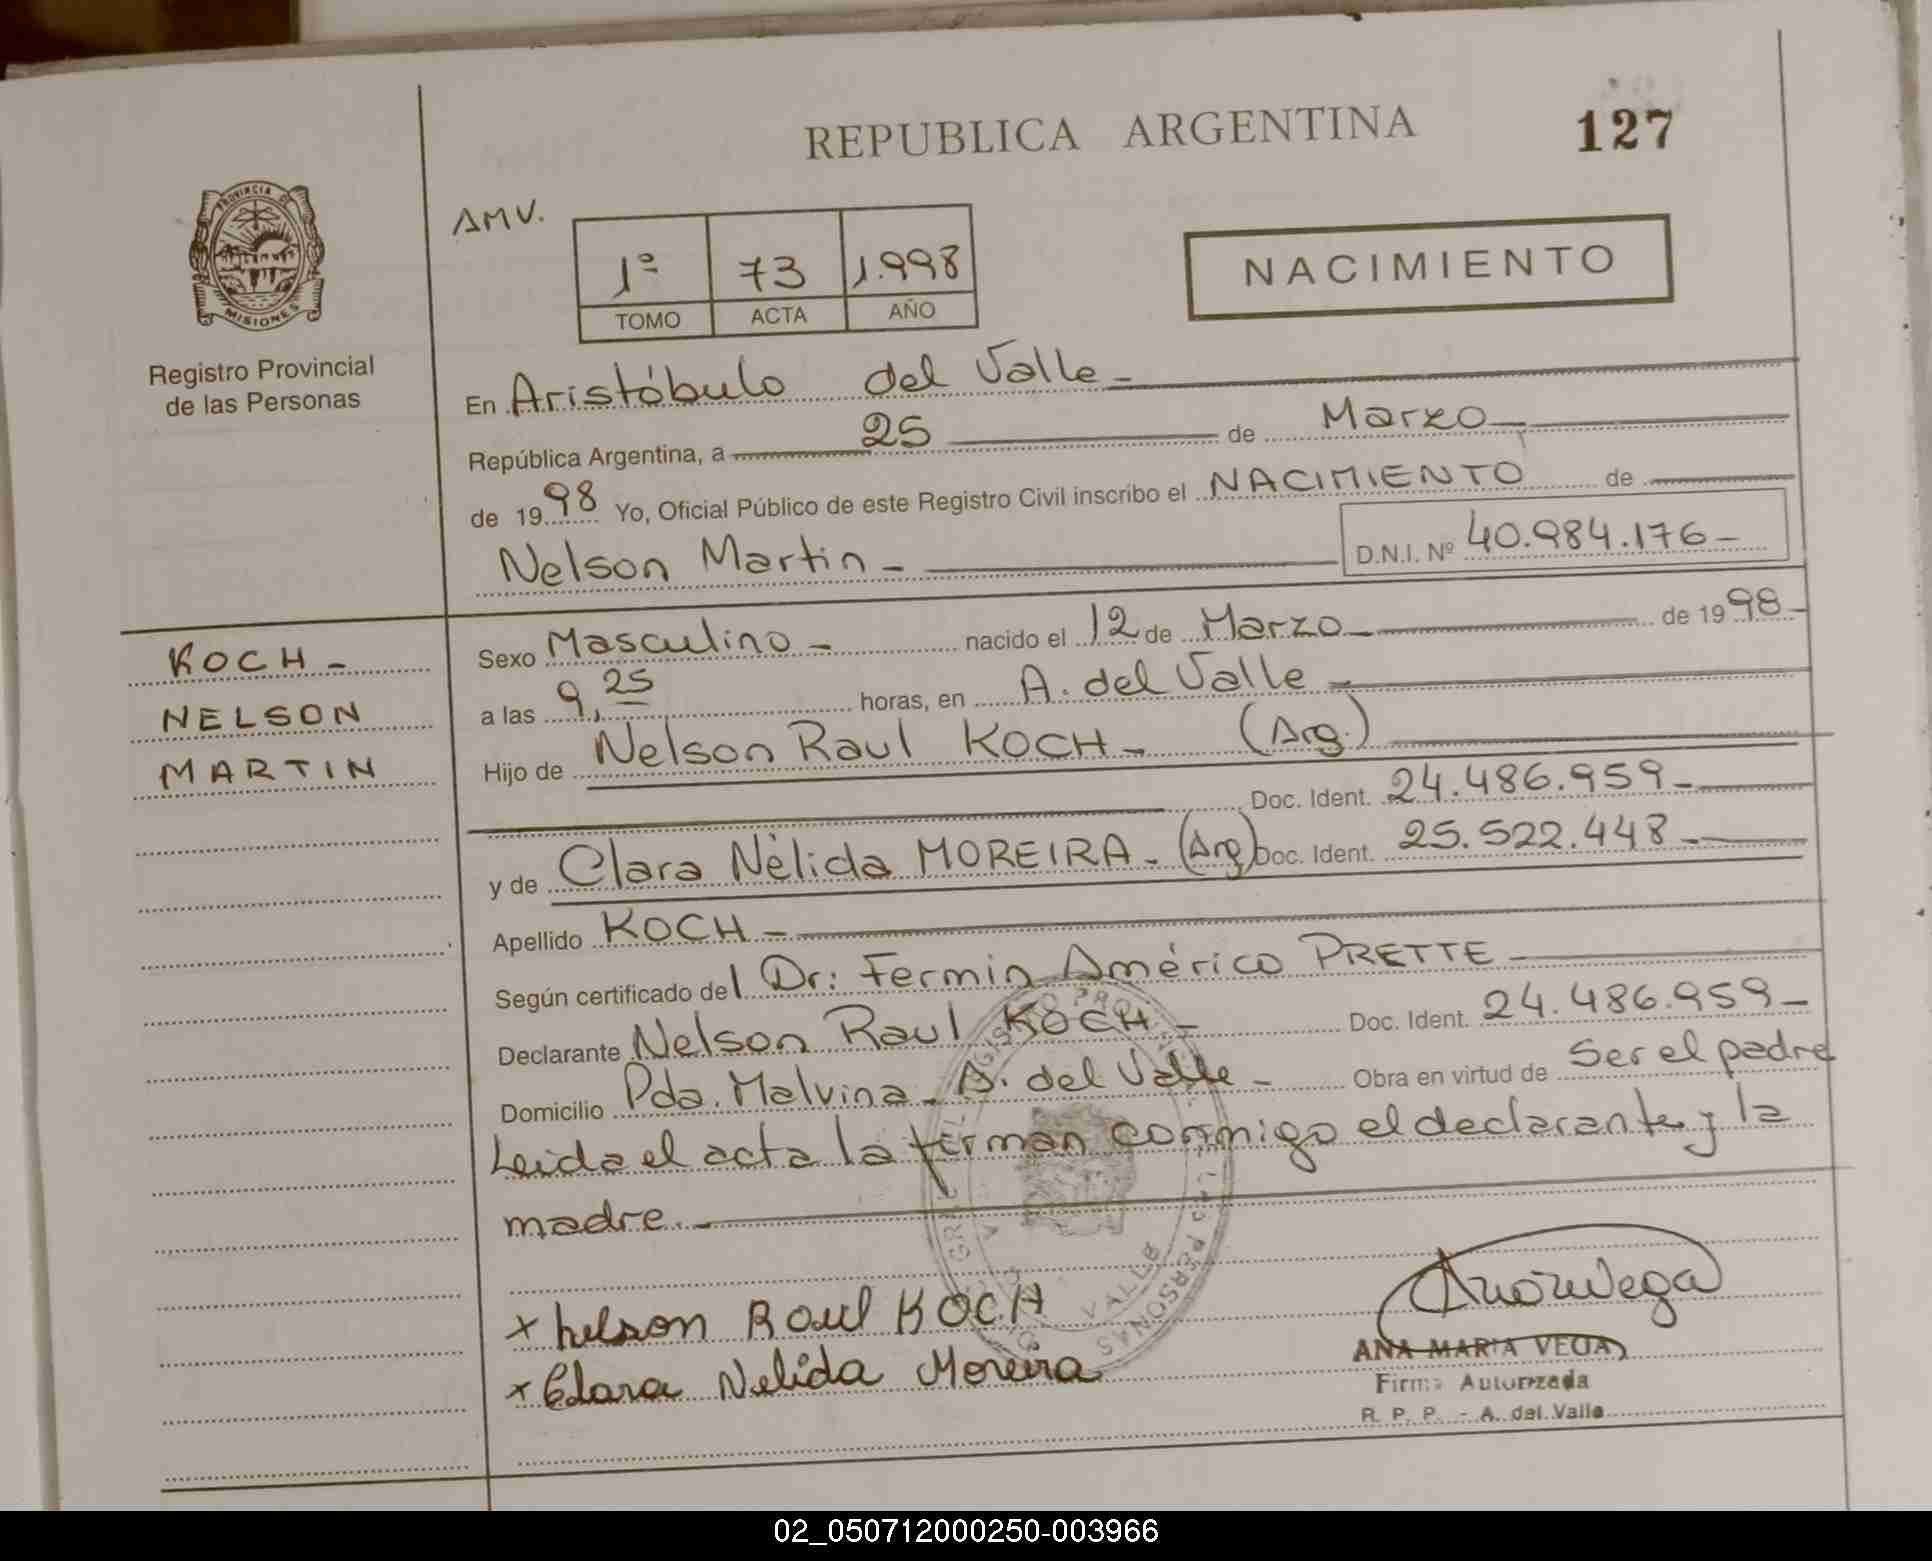 REPUBLICA ARGENTINA
127
PROVINCIA DE
MISIONES
Registro Provincial
de las Personas
AMV.
1º 73 1.998
TOMO ACTA AÑO
NACIMIENTO
En Aristóbulo del Valle -
República Argentina, a 25 de Marzo
de 1998 Yo, Oficial Público de este Registro Civil inscribo el NACIMIENTO de
Nelson Martin - D.N.I. Nº 40.984.176-
KOCH -
NELSON
MARTIN
Sexo Masculino - nacido el 12 de Marzo de 1998-
a las 9,25 horas, en A. del Valle -
Hijo de Nelson Raul KOCH - (Arg.)
Doc. Ident. 24.486.959-
y de Clara Nélida MOREIRA - (Arg) Doc. Ident. 25.522.448-
Apellido KOCH -
Según certificado del Dr: Fermin Américo PRETTE
Declarante Nelson Raul KOCH - Doc. Ident. 24.486.959-
Domicilio Pda. Malvina - A. del Valle - Obra en virtud de Ser el padre
Leida el acta la firman conmigo el declarante y la
madre. -
x Nelson Raul KOCH
x Clara Nelida Moreira
ANA MARIA VEGA
Firma Autorizada
R. P. P. - A. del Valle
02_050712000250-003966